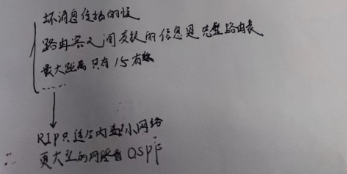 坏消息传播的慢
路由器之间交换的信息是完整路由表
最大距离只有15有效
RIP只适合内型小网络
∴ 更大型的网络看OSPF